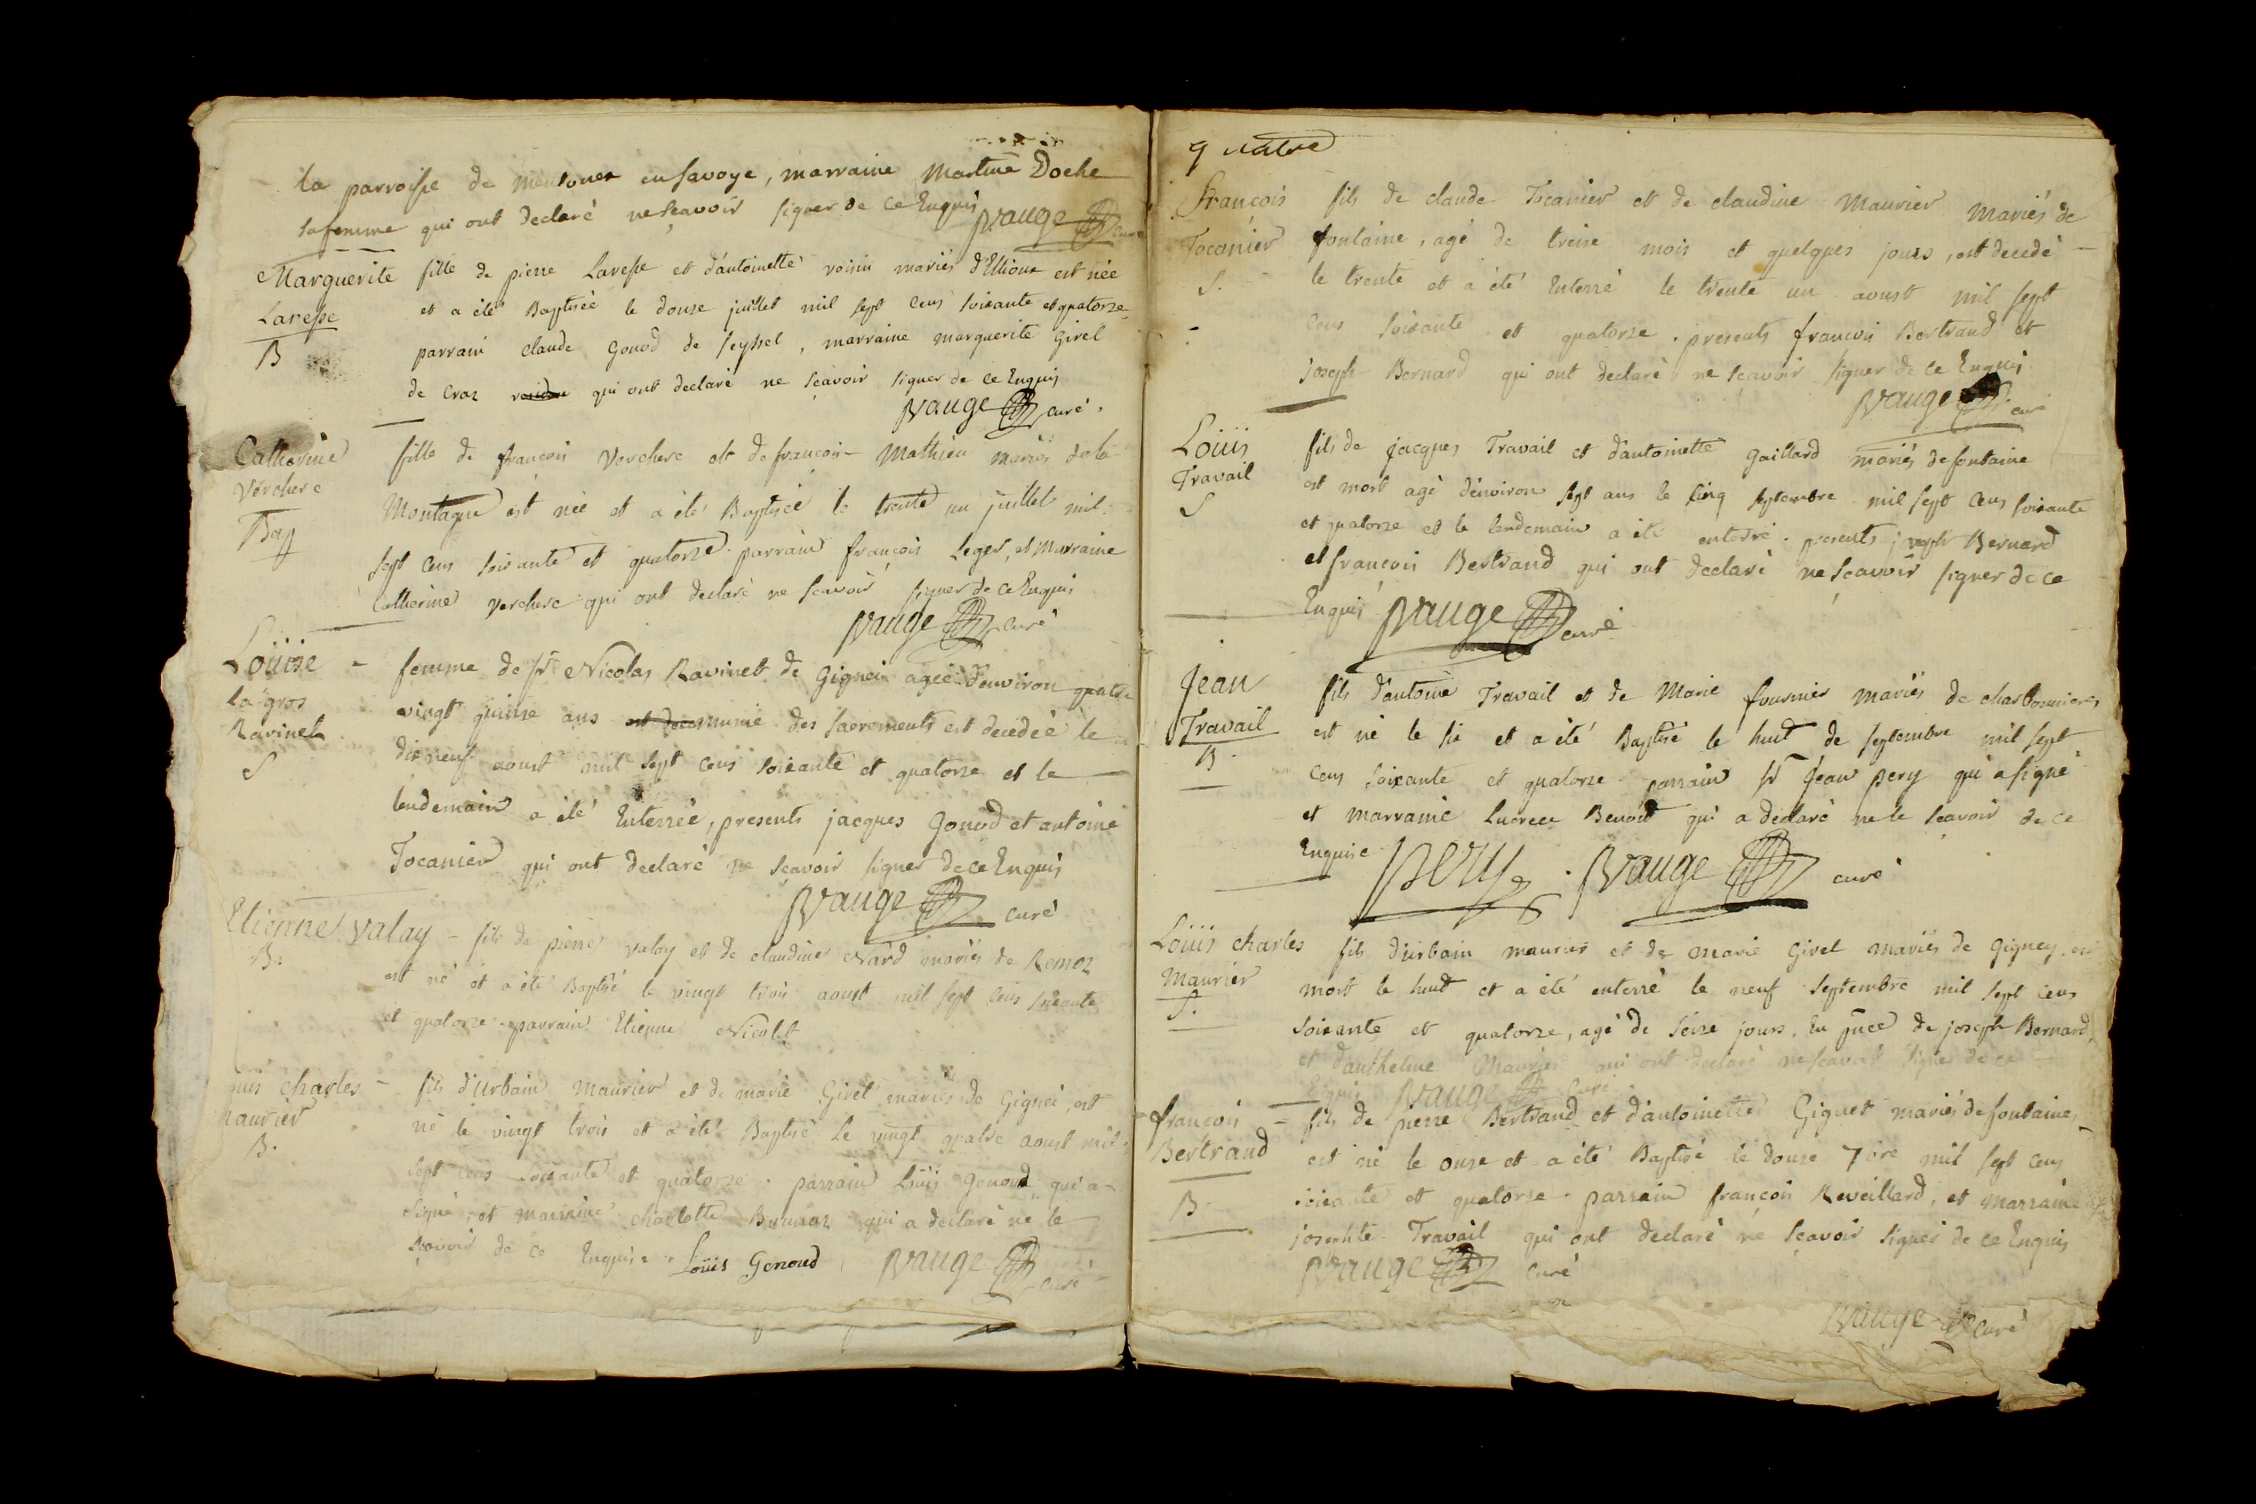 la parroisse de en savoye, marraine Martine Doche
sa femme qui ont declaré ne sçavoir signer de ce Enquis
Vauge curé
Marguerite fille de pierre Lavesse et d'antoinette voisin mariés d'Ellioux est née
Lavesse et a été Baptisée le douse juillet mil sept cens soixante et quatorze
B parrain claude Gonod de seyssel, marraine marguerite Girel
de Croz qui ont declaré ne sçavoir signer de ce Enquis
Vauge curé.
Catherine fille de françois Verchere et de françoise Mathieu mariés de la
Verchere Montagne est née et a été Baptisée le trente un juillet mil
Bap sept cens soixante et quatorze parrain françois Leger, et Marraine
Catherine verchere qui ont declaré ne sçavoir signer de ce Enquis
Vauge curé
Loüise femme de Sr Nicolas Ravinet de Gignei agée d'environ quatre
la gros vingt quinse ans munie des sacrements est decedée le
Ravinet dix neuf aoust mil sept cens soixante et quatorze et le
S lendemain a été Enterrée, presents jacques Gonod et antoine
Tocanier qui ont declaré ne sçavoir signer de ce Enquis
Vauge curé
Etienne Valay fils de pierre valay et de claudine Nard mariés de Remoz
B. est né et a été Baptisé le vingt trois aoust mil sept cens soixante
et quatorze parrain Etienne Nicolet
ouis charles fils d'urbain Maurier et de marie Girel mariés de Gignei, est
maurier né le vingt trois et a été Baptisé le vingt quatre aoust mil
B. sept cens soixante et quatorze. parrain Loüis Genoud qui a
signé, et marraine charlotte qui a declaré ne le
sçavoir de ce Enquise. Loüis Genoud Vauge curé
quatre
François fils de claude Tocanier et de claudine Maurier mariés de
Tocanier fontaine, agé de treise mois et quelques jours, est decedé
S. le trente et a été Enterré le trente un aoust mil sept
cens soixante et quatorze. presents françois Bertrand et
joseph Bernard qui ont declaré ne sçavoir signer de ce Enquis
Vauge curé
Loüis fils de jacques Travail et d'antoinette gaillard mariés de fontaine
Travail est mort agé d'environ sept ans le cinq septembre mil sept cens soixante
S et quatorze et le lendemain a été enterré. presents joseph Bernard
et françois Bertrand qui ont declaré ne sçavoir signer de ce
Enquis Vauge curé
Jean fils d'antoine Travail et de Marie fournier mariés de charbonnieres
Travail est né le six et a été Baptisé le huit de septembre mil sept
B. cens soixante et quatorze parrain Sr Jean pery qui a signé
et marraine Lucrece Benoit qui a declaré ne le sçavoir de ce
Enquise pery. Vauge curé
Loüis charles fils d'urbain maurier et de marie Girel mariés de Gigney est
Maurier mort le huit et a été enterré le neuf septembre mil sept cens
S. soixante et quatorze, agé de seise jours. En pnce de joseph Bernard,
et d'anthelme Maurier qui ont declaré ne sçavoir signer de ce
Enquis Vauge Curé
françois fils de pierre Bertrand et d'antoinette Giguet mariés de fontaine
Bertrand est né le onse et a été Baptisé le douse 7bre mil sept cens
B. soixante et quatorze. parrain françois Reveillard, et marraine
josephte Travail qui ont declaré ne sçavoir signer de ce Enquis
Vauge curé
Vauge curé